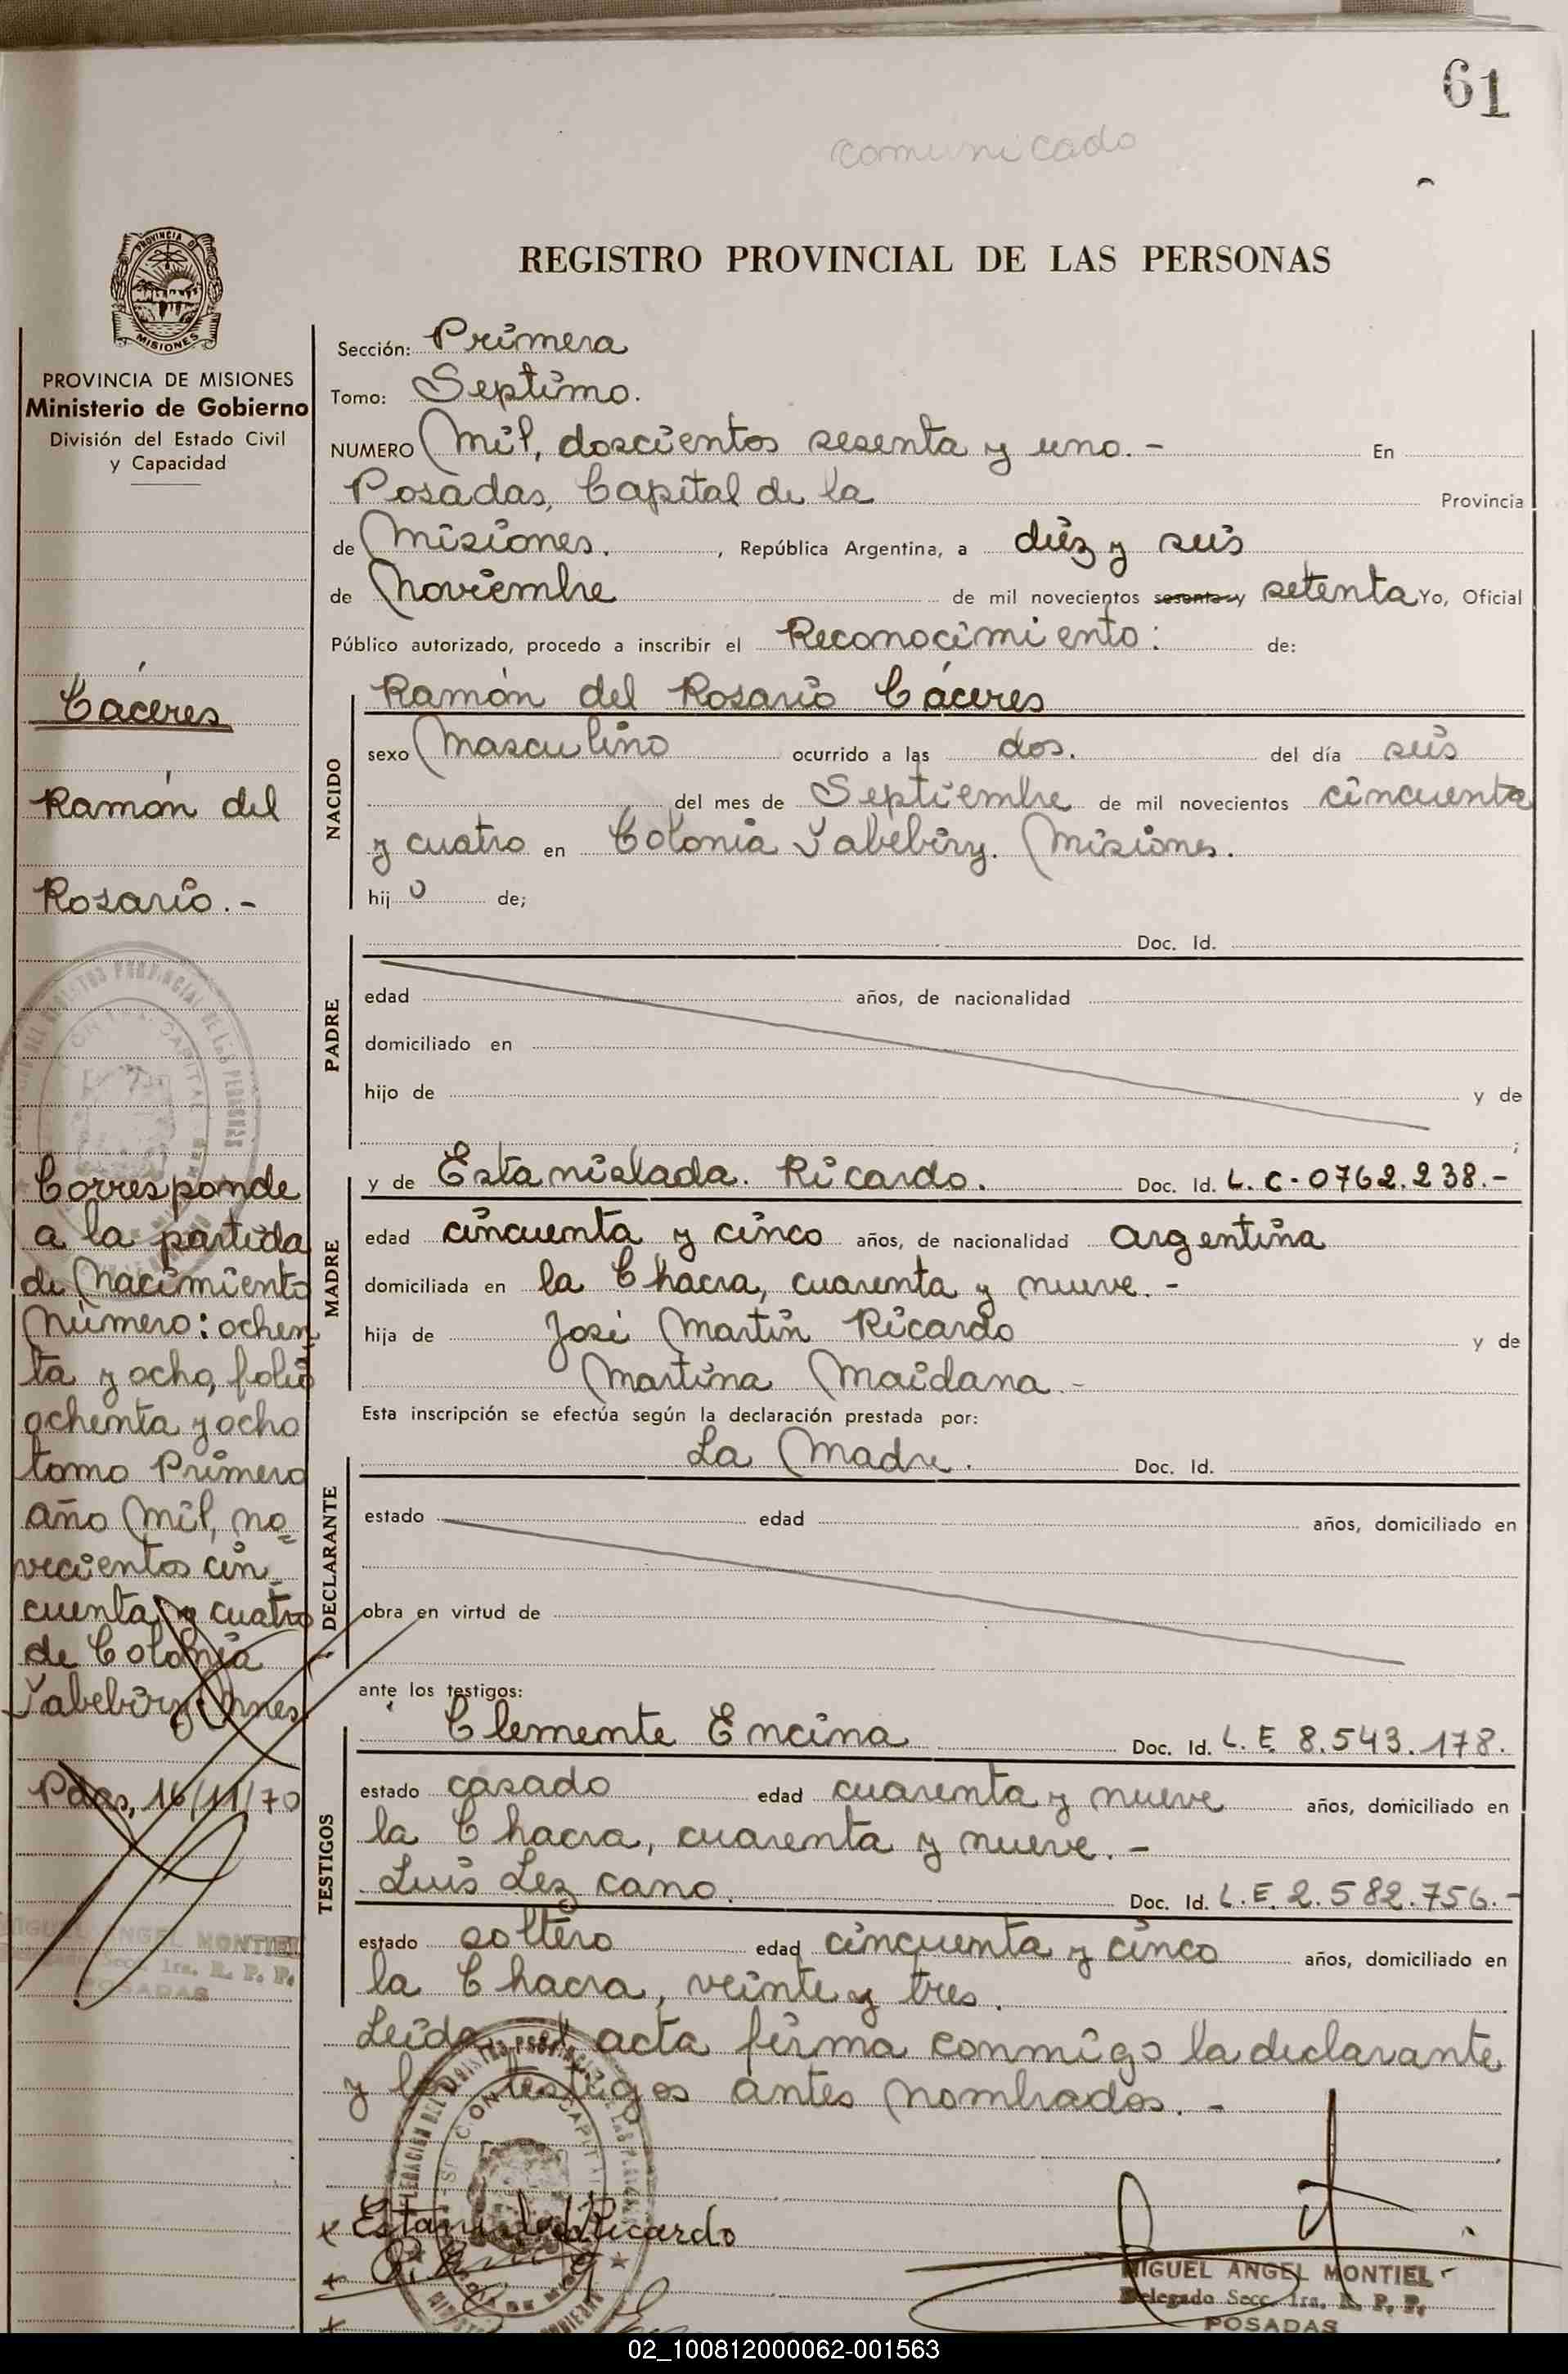 61
comunicado
REGISTRO PROVINCIAL DE LAS PERSONAS
PROVINCIA DE MISIONES
Ministerio de Gobierno
División del Estado Civil
y Capacidad
Cáceres
Ramón del
Rosario.-
Corresponde
a la partida
de Nacimiento
Número: ochen
ta y ocho, folio
ochenta y ocho
tomo Primero
año mil, no=
vecientos cin_
cuenta y cuatro
de Colonia
Yabebiry. Mnes
Pdas, 16/11/70
MIGUEL ANGEL MONTIEL
Delegado Secc. 1ra. R. P. P.
POSADAS
Sección: Primera
Tomo: Septimo.
NUMERO Mil, doscientos sesenta y uno.- En
Posadas, Capital de la Provincia
de Misiones. , República Argentina, a diez y seis
de Noviembre de mil novecientos sesenta y setenta Yo, Oficial
Público autorizado, procedo a inscribir el Reconocimiento: de:
Ramón del Rosario Cáceres
NACIDO
sexo Masculino ocurrido a las dos. del día seis
del mes de Septiembre de mil novecientos cincuenta
y cuatro en Colonia Yabebiry. Misiones.
hij o de;
PADRE
Doc. Id.
edad años, de nacionalidad
domiciliado en
hijo de y de
;
MADRE
y de Estanislada. Ricardo. Doc. Id. L.C-0762.238.-
edad cincuenta y cinco años, de nacionalidad Argentina
domiciliada en la Chacra, cuarenta y nueve.-
hija de José Martín Ricardo y de
Martina Maidana.-
Esta inscripción se efectúa según la declaración prestada por:
DECLARANTE
La Madre. Doc. Id.
estado edad años, domiciliado en
obra en virtud de
ante los testigos:
TESTIGOS
Clemente Encina Doc. Id. L.E. 8.543.178.
estado casado edad cuarenta y nueve años, domiciliado en
la Chacra, cuarenta y nueve.-
Luis Lezcano. Doc. Id. L.E. 2.582.756.-
estado soltero edad cincuenta y cinco años, domiciliado en
la Chacra, veinte y tres.
Leída el acta firma conmigo la declarante
y los testigos antes nombrados.-
x Estanislada Ricardo
MIGUEL ANGEL MONTIEL
Delegado Secc. 1ra. R. P. P.
POSADAS
02_100812000062-001563